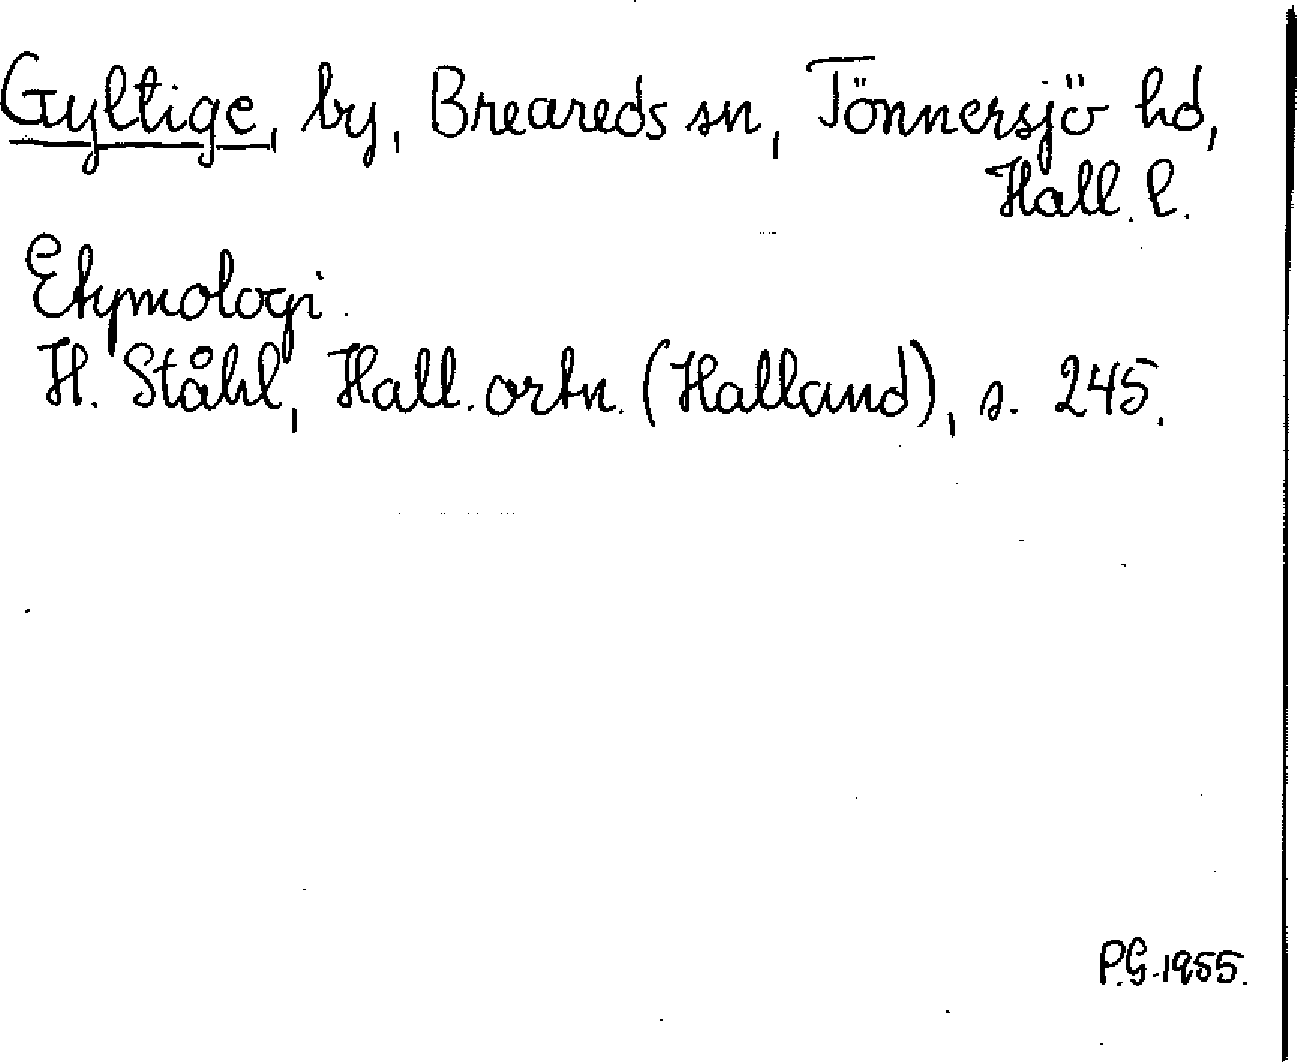 Gyltige, by, Breareds sn, Tönnersjö hd,
Hall. l.
Etymologi.
H. Ståhl, Hall. ortn. (Halland), s. 245.
P.G. 1955.